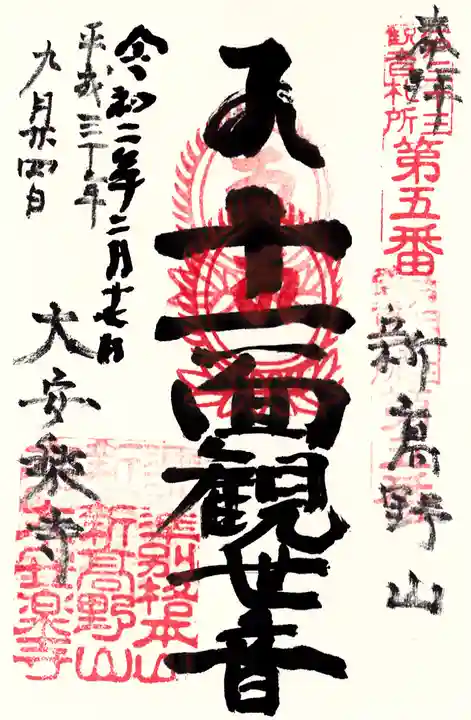 奉拝
観音札所
第五番
新高野山
十一面観世音
令和二年二月
平成三十年
九月廿四日
大安楽寺
準別格本山
新高野山
大安楽寺